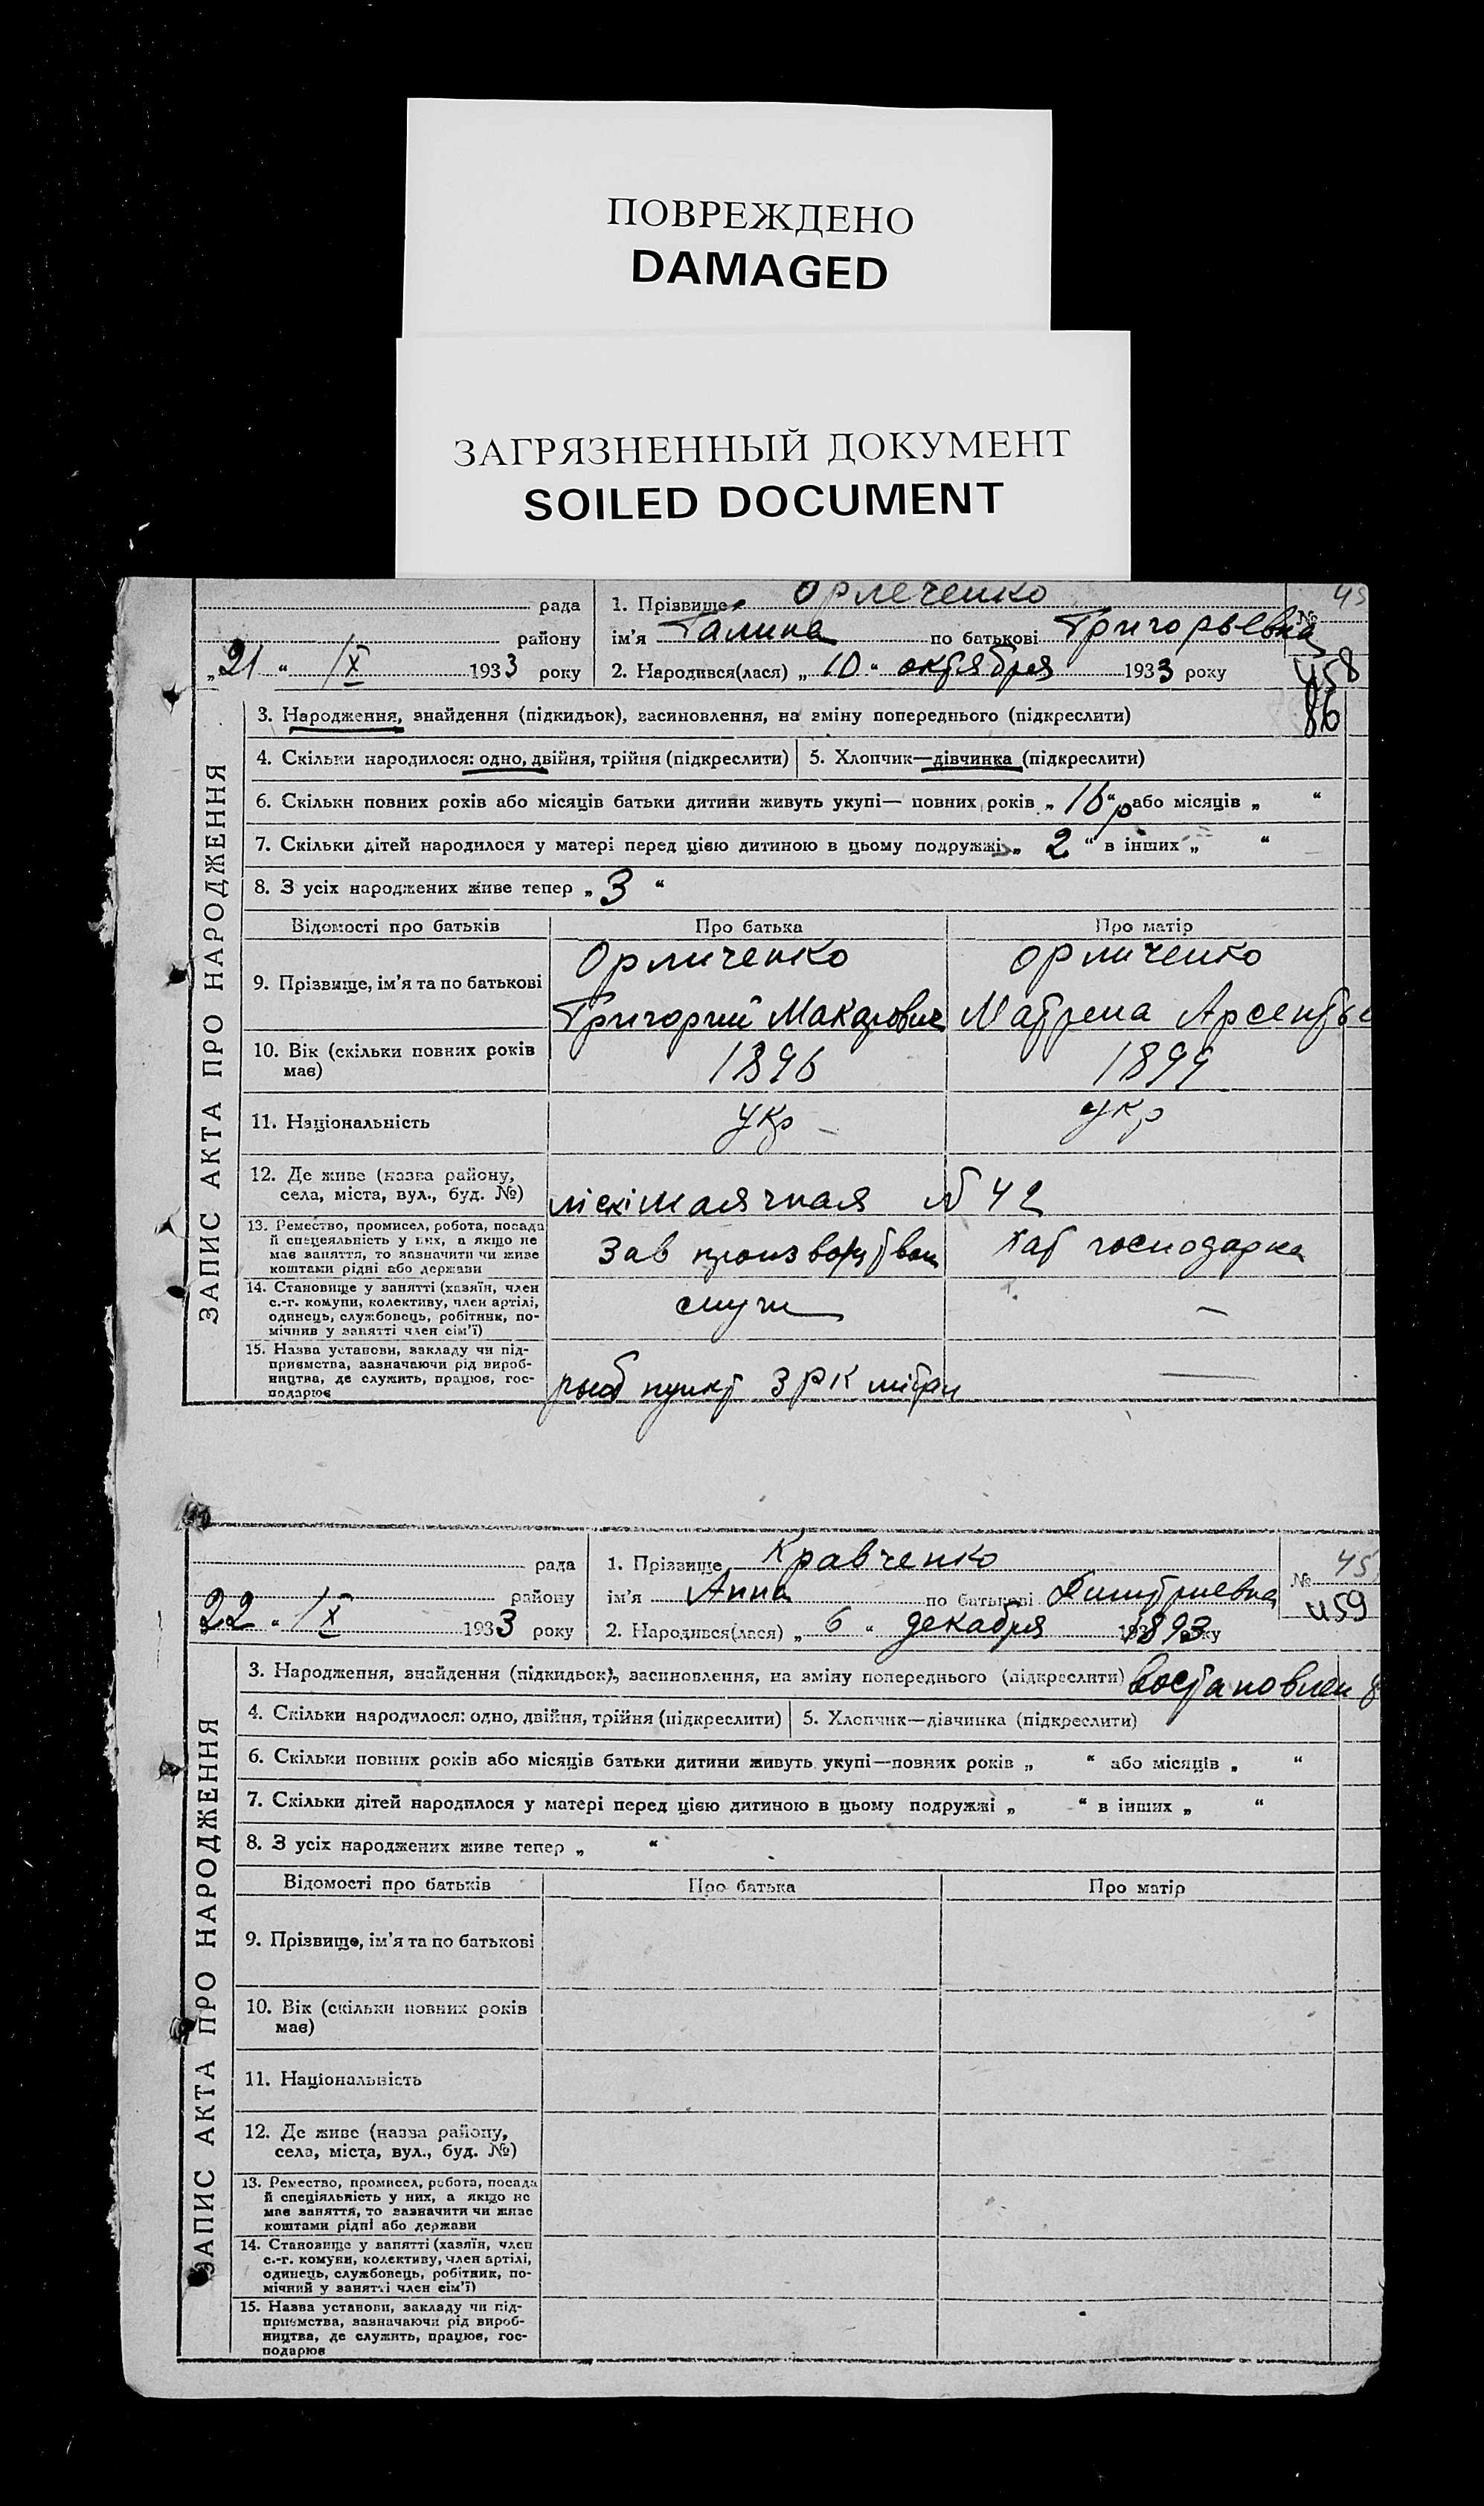 ПОВРЕЖДЕНО
DAMAGED
ЗАГРЯЗНЕННЫЙ ДОКУМЕНТ
SOILED DOCUMENT
ЗАПИС АКТА ПРО НАРОДЖЕННЯ
рада
району
„21“ IX 1933 року
1. Прізвище Орлеченко
ім’я Галина по батькові Григорьевна
2. Народився(лася) „10“ октября 1933 року
№ 45
458
86
3. Народження, знайдення (підкидьок), засиновлення, на зміну попереднього (підкреслити)
4. Скільки народилося: одно, двійня, трійня (підкреслити)
5. Хлопчик—дівчинка (підкреслити)
6. Скільки повних рохів або місяців батьки дитини живуть укупі— повних років „16“ р або місяців „ “
7. Скільки дітей народилося у матері перед цією дитиною в цьому подружжі „2“ в інших „ “
8. З усіх народжених живе тепер „3“
Відомості про батьків
Про батька
Про матір
9. Прізвище, ім’я та по батькові
Орличенко
Григорий Макарович
Орличенко
Матрена Арсентье
10. Вік (скільки повних років має)
1896
1899
11. Національність
укр
укр
12. Де живе (назва району,
села, міста, вул., буд. №)
№ 42
13. Ремество, промисел, робота, посада
й спецеяльність у них, а якщо не
має заняття, то зазначити чи живе
коштами рідні або держави
Зав
Хат господарка
14. Становище у занятті (хазяїн, член
с.-г. комуни, колективу, член артілі,
одинець, службовець, робітник, по-
мічнив у занятті член сім’ї)
служ
—
15. Назва установи, закладу чи під-
приємства, зазначаючи рід вироб-
ництва, де служить, працює, гос-
подарює
пункт ЗРК
—
ЗАПИС АКТА ПРО НАРОДЖЕННЯ
рада
району
22 “ IX 1933 року
1. Прізвище Кравченко
ім’я Анна по батькові Димтриевна
2. Народився(лася) „6“ декабря 1893 року
№ 45
459
3. Народження, знайдення (підкидьок), засиновлення, на зміну попереднього (підкреслити) востановлен
4. Скільки народилося: одно, двійня, трійня (підкреслити)
5. Хлопчик—дівчинка (підкреслити)
6. Скільки повних років або місяців батьки дитини живуть укупі—повних років „ “ або місяців „ “
7. Скільки дітей народилося у матері перед цією дитиною в цьому подружжі „ “ в інших „ “
8. З усіх народжених живе тепер „ “
Відомості про батьків
Про батька
Про матір
9. Прізвище, ім’я та по батькові
10. Вік (скільки повних років
має)
11. Національність
12. Де живе (назва району,
села, міста, вул., буд. №)
13. Ремество, промисел, робота, посада
й спеціяльність у них, а якщо не
має заняття, то зазначити чи живе
коштами рідні або держави
14. Становище у занятті (хазяїн, член
с.-г. комуни, колективу, член артілі,
одинець, службовець, робітник, по-
мічний у занятті член сім’ї)
15. Назва установи, закладу чи під-
приємства, зазначаючи рід вироб-
ництва, де служить, працює, гос-
подарює